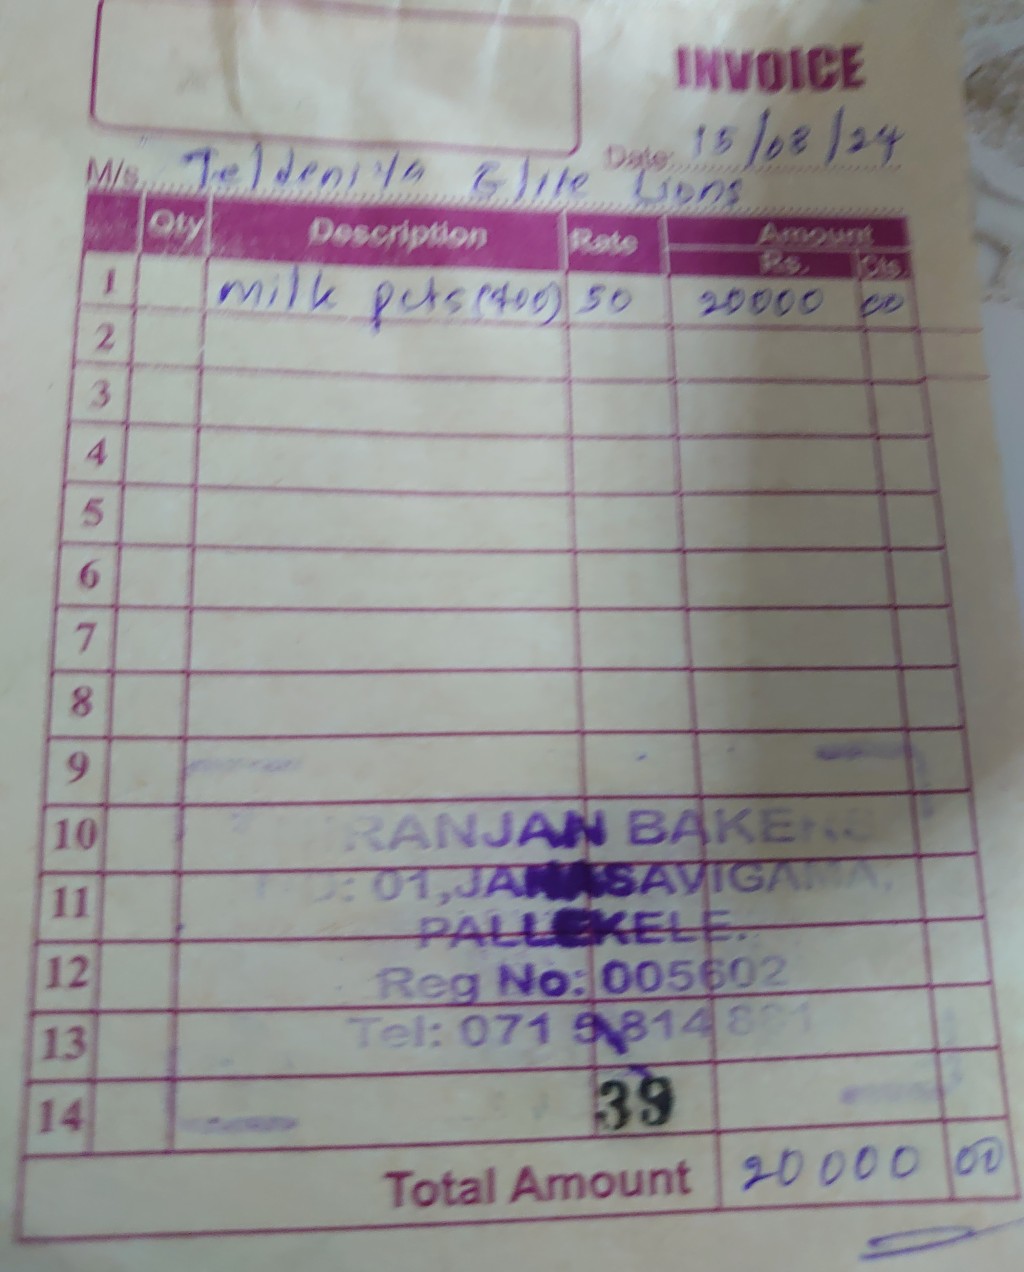 INVOICE
Date: 15/08/24
M/s. Teldeniya Elite Lions
Qty Description Rate Amount
Rs. Cts.
1 milk pcts (400) 50 20000 00
2
3
4
5
6
7
8
9
10 RANJAN
: 01, JANASAVIGAMA,
11
PALLEKELE.
12 Reg No: 005602
13 Tel: 071 814
14 39
Total Amount 20000 00